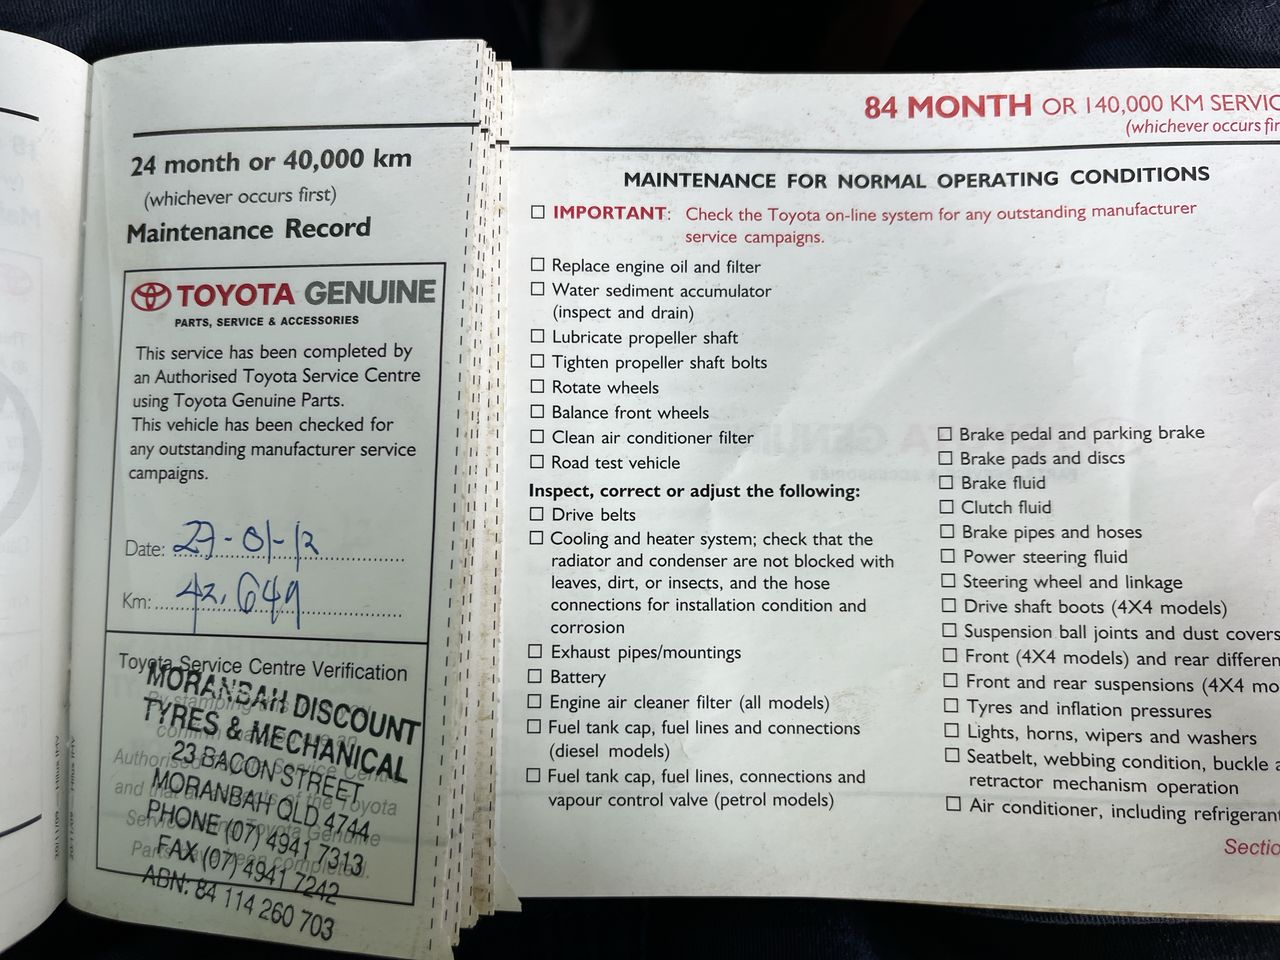 24 month or 40,000 km
(whichever occurs first)
Maintenance Record
TOYOTA GENUINE
PARTS, SERVICE & ACCESSORIES
This service has been completed by
an Authorised Toyota Service Centre
using Toyota Genuine Parts.
This vehicle has been checked for
any outstanding manufacturer service
campaigns.
Date: 27-01-12
Km: 42,649
Toyota Service Centre Verification
MORANBAH DISCOUNT
TYRES & MECHANICAL
23 BACON STREET
MORANBAH QLD 4744
PHONE (07) 4941 7313
FAX (07) 4941 7242
ABN: 84 114 260 703
84 MONTH OR 140,000 KM SERVIC
(whichever occurs fir
MAINTENANCE FOR NORMAL OPERATING CONDITIONS
IMPORTANT: Check the Toyota on-line system for any outstanding manufacturer
service campaigns.
Replace engine oil and filter
Water sediment accumulator
(inspect and drain)
Lubricate propeller shaft
Tighten propeller shaft bolts
Rotate wheels
Balance front wheels
Clean air conditioner filter
Road test vehicle
Inspect, correct or adjust the following:
Drive belts
Cooling and heater system; check that the
radiator and condenser are not blocked with
leaves, dirt, or insects, and the hose
connections for installation condition and
corrosion
Exhaust pipes/mountings
Battery
Engine air cleaner filter (all models)
Fuel tank cap, fuel lines and connections
(diesel models)
Fuel tank cap, fuel lines, connections and
vapour control valve (petrol models)
Brake pedal and parking brake
Brake pads and discs
Brake fluid
Clutch fluid
Brake pipes and hoses
Power steering fluid
Steering wheel and linkage
Drive shaft boots (4X4 models)
Suspension ball joints and dust covers
Front (4X4 models) and rear differen
Front and rear suspensions (4X4 mo
Tyres and inflation pressures
Lights, horns, wipers and washers
Seatbelt, webbing condition, buckle a
retractor mechanism operation
Air conditioner, including refrigerant
Sectio